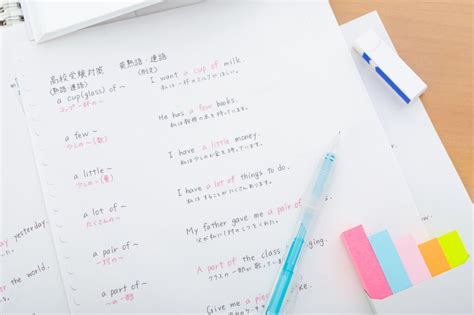 高校受験対策 英熟語・連語
(熟語・連語) (形容)
a cup(glass) of~ I want a cup of milk
コップ一杯の~ 私は一杯のミルクがほしい。
a few~ He has a few books.
少しの~(数)
a little~ I have a little money.
少しの~(量) 私は少しのお金を持っています。
a lot of~ I have a lot of things to do.
たくさんの~ 私はすることがたくさんあります。
a pair of~ My father gave me a pair of
一対の~
a part of~ A part of the class
~の一部 クラスの一部が歌っています。
Give me a
yesterday.
yesterday.
the world.